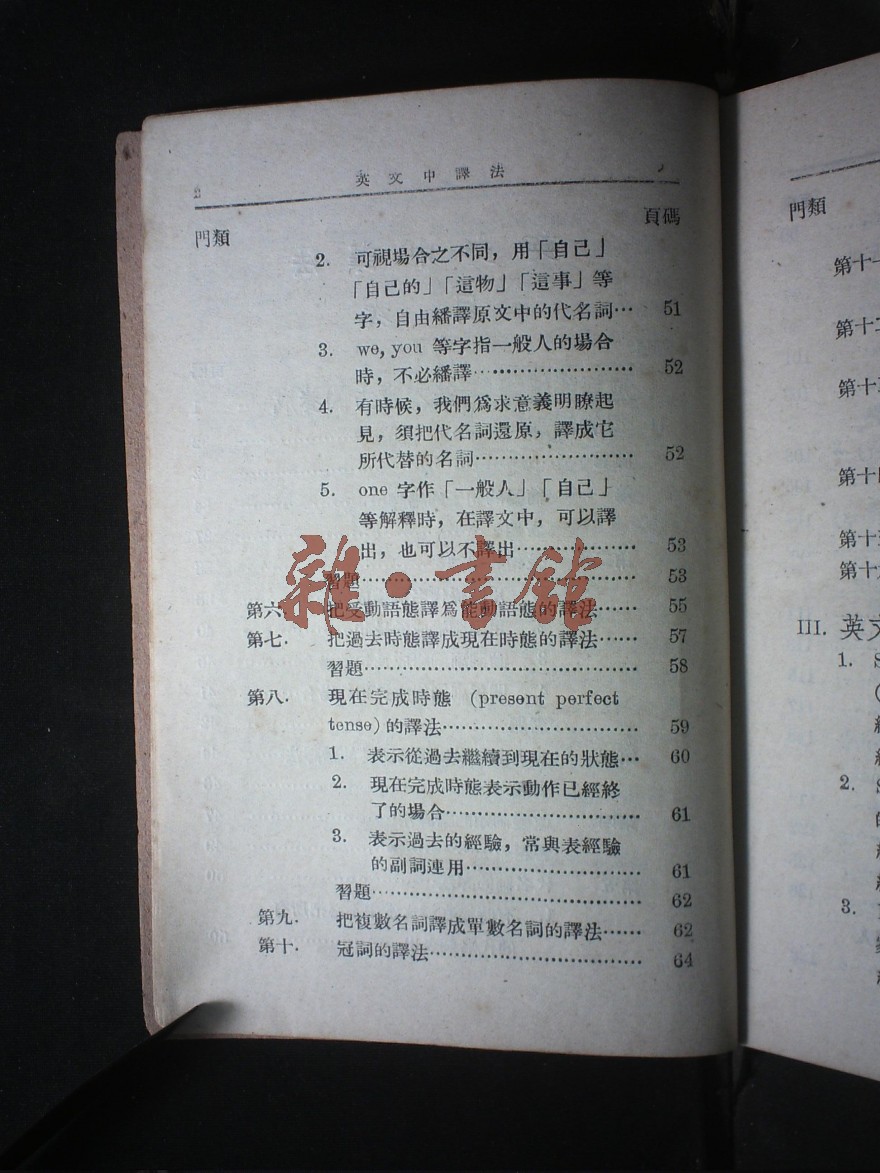 2 英文中譯法
門類 頁碼
2. 可視場合之不同，用「自己」
「自己的」「這物」「這事」等
字，自由繙譯原文中的代名詞… 51
3. we, you 等字指一般人的場合
時，不必繙譯…………………… 52
4. 有時候，我們爲求意義明瞭起
見，須把代名詞還原，譯成它
所代替的名詞…………………… 52
5. one 字作「一般人」「自己」
等解釋時，在譯文中，可以譯
出，也可以不譯出……………… 53
習題…………………………………… 53
第六. 把受動語態譯爲能動語態的譯法…… 55
第七. 把過去時態譯成現在時態的譯法…… 57
習題…………………………………… 58
第八. 現在完成時態 (present perfect
tense)的譯法………………………… 59
1. 表示從過去繼續到現在的狀態… 60
2. 現在完成時態表示動作已經終
了的場合………………………… 61
3. 表示過去的經驗，常與表經驗
的副詞連用……………………… 61
習題…………………………………… 62
第九. 把複數名詞譯成單數名詞的譯法…… 62
第十. 冠詞的譯法…………………………… 64
雜·書館
門類
第十
第十
第十
第十
第十
第十
III. 英文
1. S
(
2. S
的
3.